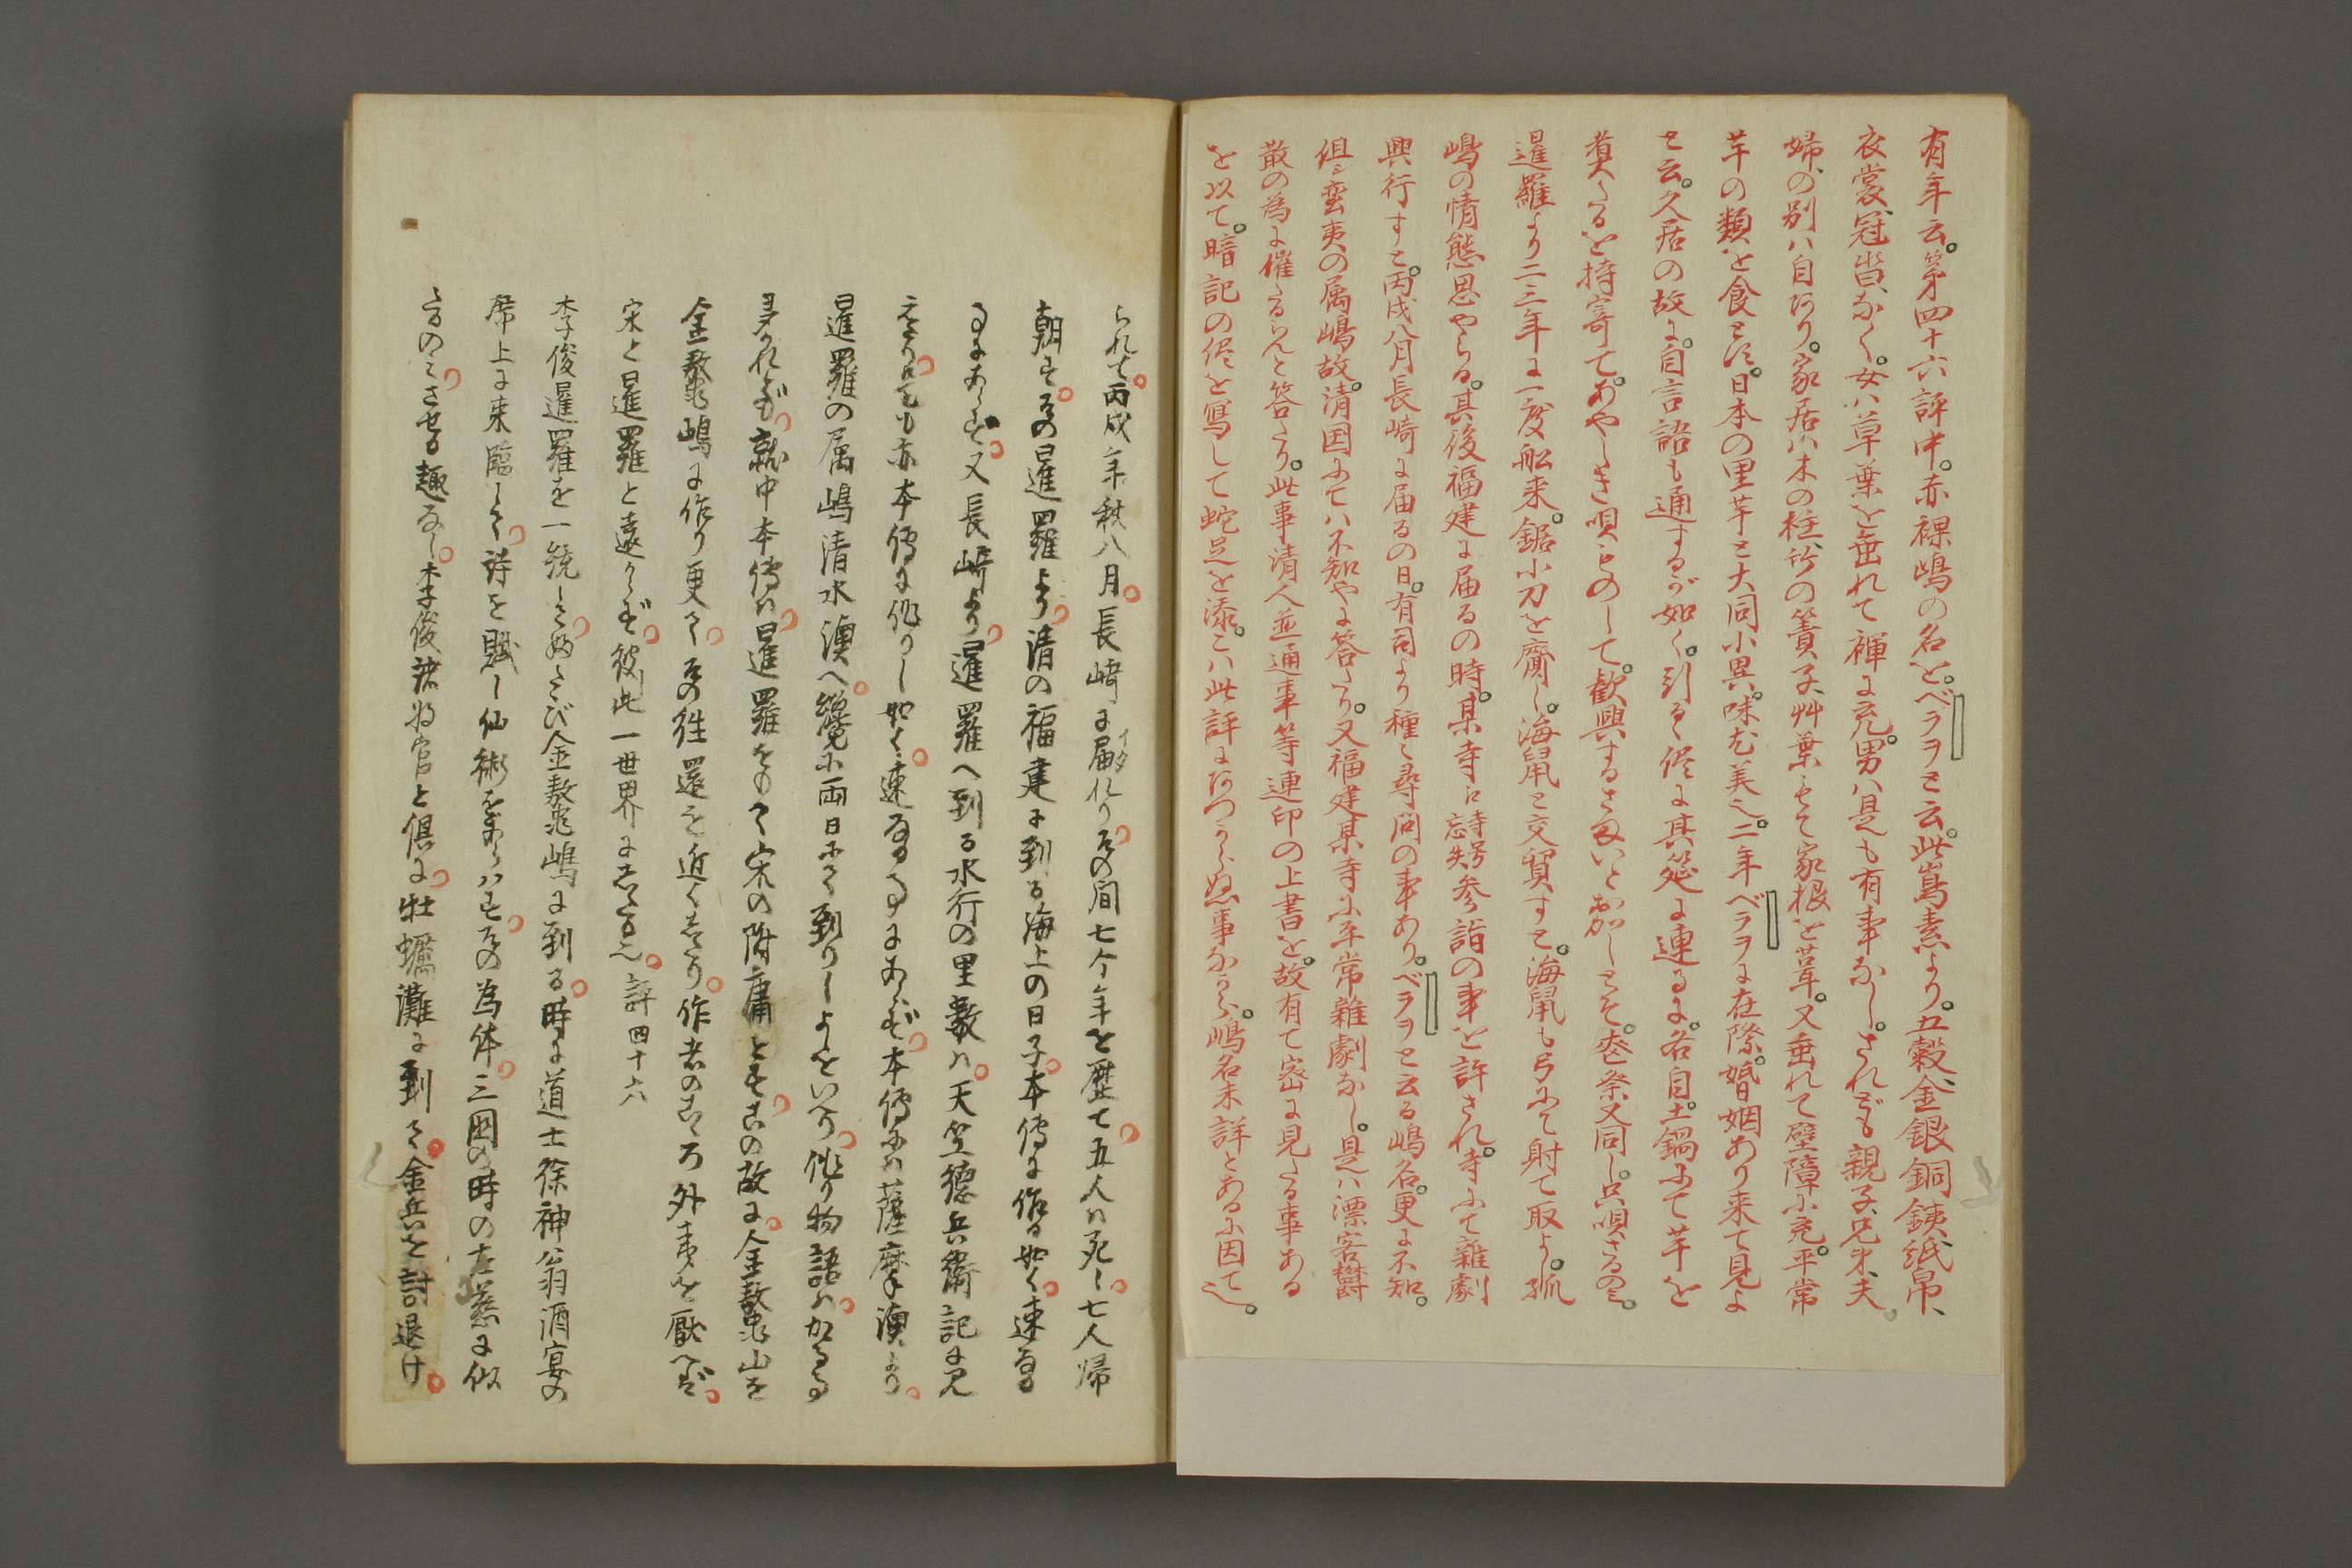 有年云。第四十六評中。赤裸嶋の名を。ベラヲと云。此嶌素より。五穀、金銀銅銕、紙帛、
衣裳、冠沓、なく。女ハ草葉を垂れて褌に充。男ハ是も有事なし。されども親子、兄弟、夫
婦、の別ハ自アリ。家居ハ木の柱、竹の簀子、艸葉もて家根を葺。又垂れて壁障に充。平常
芋の類を食とす。日本の里芋と大同小異。味尤美也。二年ベラヲに在際。婚姻あり来て見よ
と云。久居の故に。自言語も通するが如く。引るゝ侭に其筵に連るに。各自。土鍋にて芋を
煑たるを持寄て。あやしき唄ものして。歓興するさまいとおかしとそ。喪祭又同し。只唄さるのミ。
暹羅より二三年に一度舩来。鋸小刀を齎し。海鼠と交貿すと。海鼠も弓にて射て取よし。孤
嶋の情態思やらる。其後福建に届るの時。某寺に詩号忘失参詣の事を許され。寺にて雑劇
興行すと。丙戌八月長崎に届るの日。有司より種々尋問の事あり。ベラヲと云る嶋名。更に不知。
但シ蛮夷の属嶋故。清国にてハ不知やに答たり。又福建某寺に平常雑劇なし。是ハ漂客欝
散の為に催たるらんと答たり。此事清人並通事等連印の上書を。故有て密に見たる事ある
を以て。暗記の侭を寫して蛇足を添。こハ此評にアヅからぬ事ながら。嶋名未詳とあるに因て也。
られて。丙戌年秋八月。長崎に届イタれり。その間七ケ年を歴て。五人ハ死し。七人帰
朝す。その暹羅より。清の福建に到る海上の日子。本傳に作る如く。速なる
事にあらず。又長崎より。暹羅へ到る水行の里數ハ。天竺徳兵衛記に見
えたり。そも亦本傳に作りし如く。速なる事にあらず。本傳にハ薩摩澳より。
暹羅の属嶋清水澳へ。纔に両日にて到りしよしをいへり。作り物語ハ。かゝる事
多かれども。就中本傳ハ。暹羅をもて宋の附庸とす。この故に。金鰲山を
金鰲嶋に作り更て。その徃還を近くしたり。作者のこゝろ外夷を厭へば。
宋と暹羅と遠からず。彼此一世界にしたる也。評四十六
李俊暹羅を一統して。ふたゝび金鰲嶋に到る。時に道士徐神翁酒宴の
席上に来臨して。詩を賦し仙術をあらハす。その為体。三国の時の左慈に似
たるのミ。させる趣なし。李俊諸将官と倶に。牡蠣灘に到て。金兵を討退け。